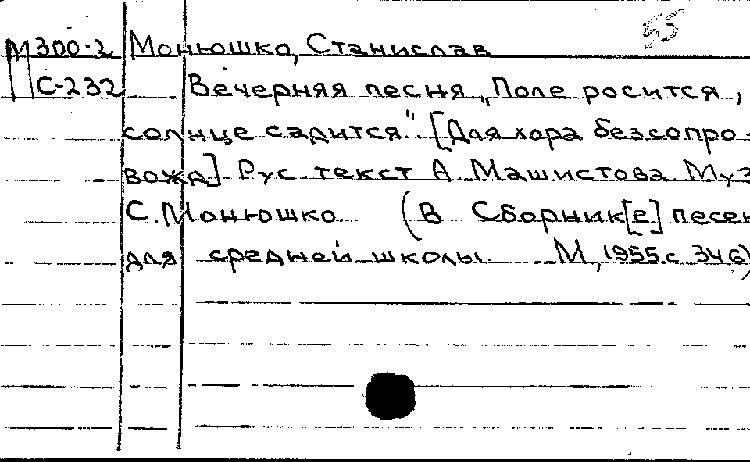 55
М300-2 Монюшко, Станислав
С-232 Вечерняя песня „Поле росится,
солнце садится". [Для хора без сопро-
вожд] Рус. текст А. Машистова. Муз
С. Монюшко (В Сборник[е] песен
для средней школы. М, 1955. с. 346)